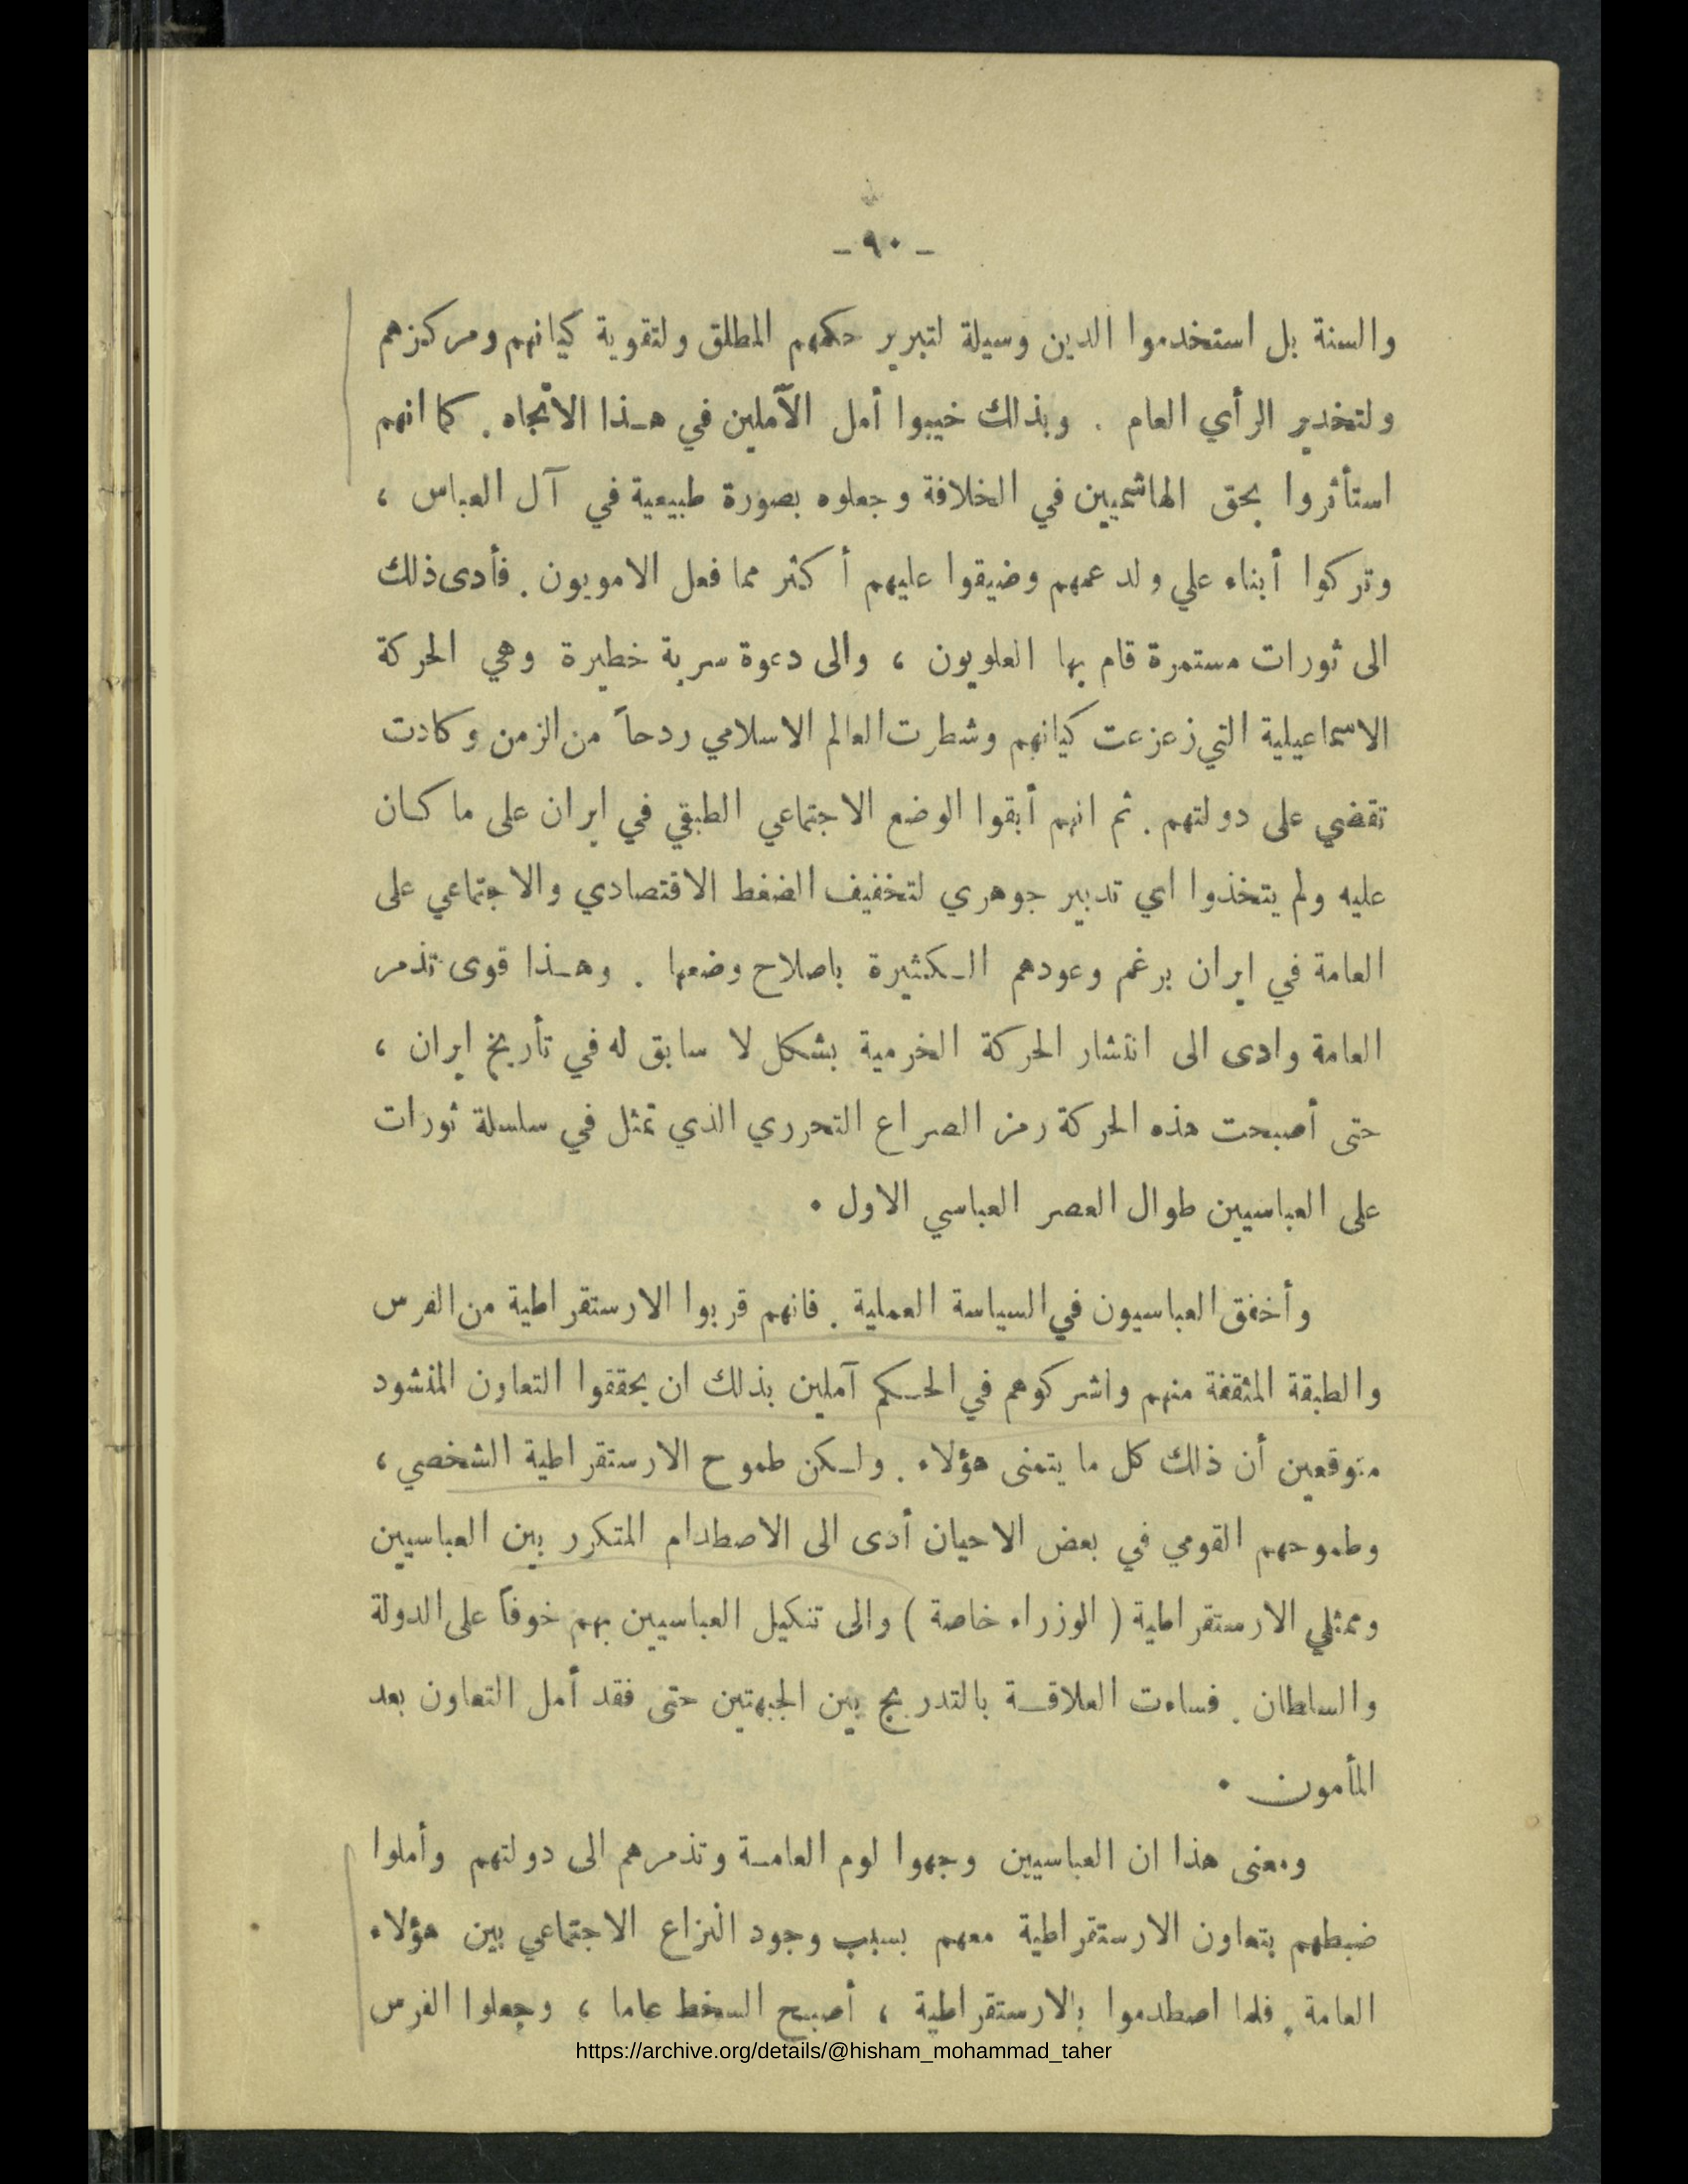 - ٩٠ -
والسنة بل استخدموا الدين وسيلة لتبرير حكمهم المطلق ولتقوية كيانهم ومركزهم
ولتخدير الرأي العام . وبذلك خيبوا أمل الآملين في هـذا الاتجاه . كما انهم
استأثروا بحق الهاشميين في الخلافة وجعلوه بصورة طبيعية في آل العباس ،
وتركوا أبناء علي ولد عمهم وضيقوا عليهم أكثر مما فعل الامويون . فأدى ذلك
الى ثورات مستمرة قام بها العلويون ، والى دعوة سرية خطيرة وهي الحركة
الاسماعيلية التي زعزعت كيانهم وشطرت العالم الاسلامي ردحاً من الزمن وكادت
تقضي على دولتهم . ثم انهم أبقوا الوضع الاجتماعي الطبقي في ايران على ما كـان
عليه ولم يتخذوا اي تدبير جوهري لتخفيف الضغط الاقتصادي والاجتماعي على
العامة في ايران برغم وعودهم الـكثيرة باصلاح وضعها . وهـذا قوى تذمر
العامة وادى الى انتشار الحركة الخرمية بشكل لا سابق له في تأريخ ايران ،
حتى أصبحت هذه الحركة رمز الصراع التحرري الذي تمثل في سلسلة ثورات
على العباسيين طوال العصر العباسي الاول .
وأخفق العباسيون في السياسة العملية . فانهم قربوا الارستقراطية من الفرس
والطبقة المثقفة منهم واشركوهم في الحـكم آملين بذلك ان يحققوا التعاون المنشود
متوقعين أن ذلك كل ما يتمنى هؤلاء . ولـكن طموح الارستقراطية الشخصي ،
وطموحهم القومي في بعض الاحيان أدى الى الاصطدام المتكرر بين العباسيين
وممثلي الارستقراطية ( الوزراء خاصة ) والى تنكيل العباسيين بهم خوفاً على الدولة
والسلطان . فساءت العلاقـة بالتدريج بين الجبهتين حتى فقد أمل التعاون بعد
المأمون .
ومعنى هذا ان العباسيين وجهوا لوم العامـة وتذمرهم الى دولتهم وأملوا
ضبطهم بتعاون الارستقراطية معهم بسبب وجود النزاع الاجتماعي بين هؤلاء
العامة . فلما اصطدموا بالارستقراطية ، أصبح السخط عاما ، وجعلوا الفرس
https://archive.org/details/@hisham_mohammad_taher